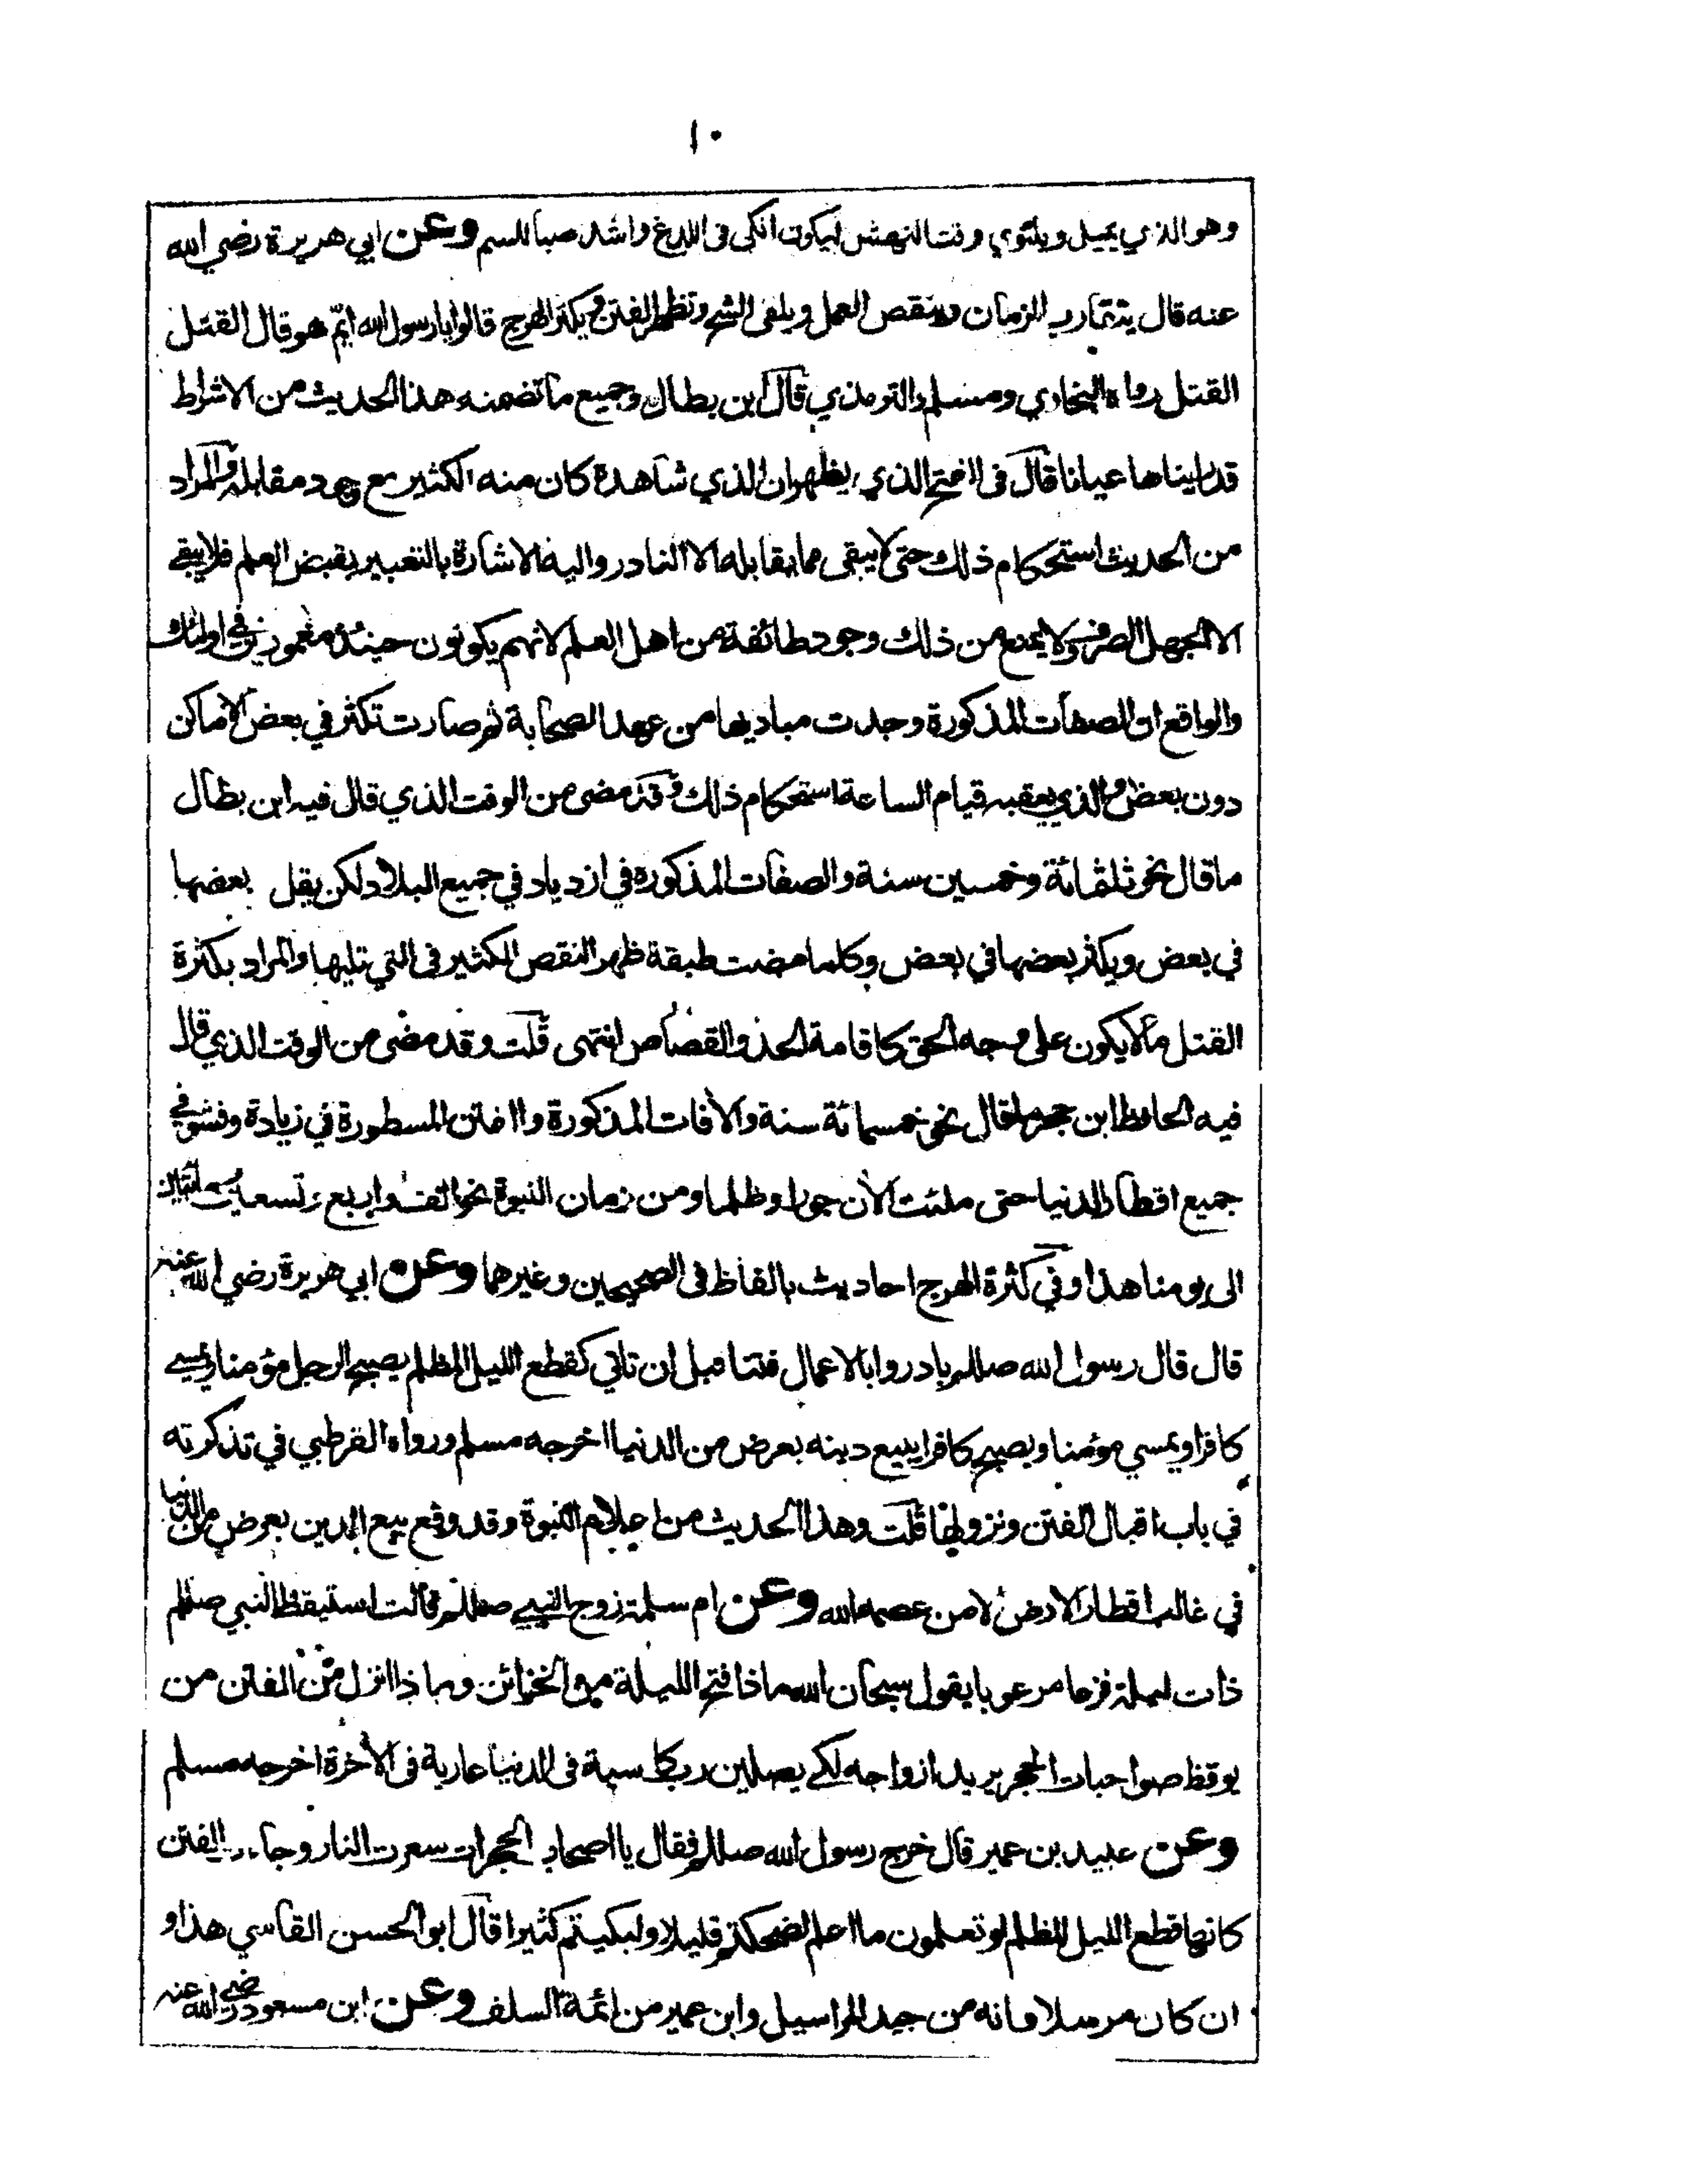 ١٠
وهو الذي يميل ويلتوي وقت النهش ليكون انكى فى اللدغ واشد صبا للسم وعن ابي هريرة رضي الله
عنه قال يتقارب الزمان وينقص العمل ويلقى الشح وتظهر الفتن ويكثر الهرج قالوا يا رسول الله ايّم هو قال القتل
القتل رواه البخاري ومسلم والترمذي قال ابن بطال وجميع ما تضمنه هذا الحديث من الاشراط
قد رايناها عيانا قال فى الفتح الذي يظهر ان الذي شاهده كان منه الكثير مع وجود مقابله والمراد
من الحديث استحكام ذلك حتى لا يبقى مما يقابله الا النادر واليه الاشارة بالتعبير بقبض العلم فلا يبقى
الا الجهل الصرف ولا يمنع من ذلك وجود طائفة من اهل العلم لانهم يكونون حينئذ مغمورين في اولئك
والواقع ان الصفات المذكورة وجدت مباديها من عهد الصحابة ثم صارت تكثر في بعض الاماكن
دون بعض والذي يعقبه قيام الساعة استحكام ذلك وقد مضى من الوقت الذي قال فيه ابن بطال
ما قال نحو ثلثمائة وخمسين سنة والصفات المذكورة في ازدياد في جميع البلاد لكن يقل بعضها
في بعض ويكثر بعضها في بعض وكلما مضت طبقة ظهر النقص الكثير فى التي تليها والمراد بكثرة
القتل ما لا يكون على وجه الحق كاقامة الحد والقصاص انتهى قلت وقد مضى من الوقت الذي قال
فيه الحافظ ابن حجر ما قال نحو خمسمائة سنة والآفات المذكورة والفتن المسطورة في زيادة وفشو في
جميع اقطار الدنيا حتى ملئت الآن جورا وظلما ومن زمان النبوة نحو الف واربع وتسعين
الى يومنا هذا وفي كثرة الهرج احاديث بالفاظ فى الصحيحين وغيرهما وعن ابي هريرة رضي الله عنه
قال قال رسول الله صللم بادروا بالاعمال فتنا قبل ان تاتي كقطع الليل المظلم يصبح الرجل مؤمنا ويمسي
كافرا ويمسي مؤمنا ويصبح كافرا يبيع دينه بعرض من الدنيا اخرجه مسلم ورواه القرطبي في تذكرته
في باب اقبال الفتن ونزولها قلت وهذا الحديث من اعلام النبوة وقد وقع بيع الدين بعرض من الدنيا
في غالب اقطار الارض الا من عصمه الله وعن ام سلمة زوج النبي صللم قالت استيقظ النبي صللم
ذات ليلة فزعا مرعوبا يقول سبحان الله ماذا فتح الليلة من الخزائن وماذا انزل من الفتن من
يوقظ صواحبات الحجر يريد ازواجه لكي يصلين رب كاسية فى الدنيا عارية فى الآخرة اخرجه مسلم
وعن عبيد بن عمير قال خرج رسول الله صللم فقال يا اصحاب الحجرات سعرت النار وجاءت الفتن
كانها قطع الليل المظلم لو تعلمون ما اعلم لضحكتم قليلا ولبكيتم كثيرا قال ابو الحسن القابسي هذا و
ان كان مرسلا فانه من جيد المراسيل وابن عمير من ائمة السلف وعن ابن مسعود رضي الله عنه